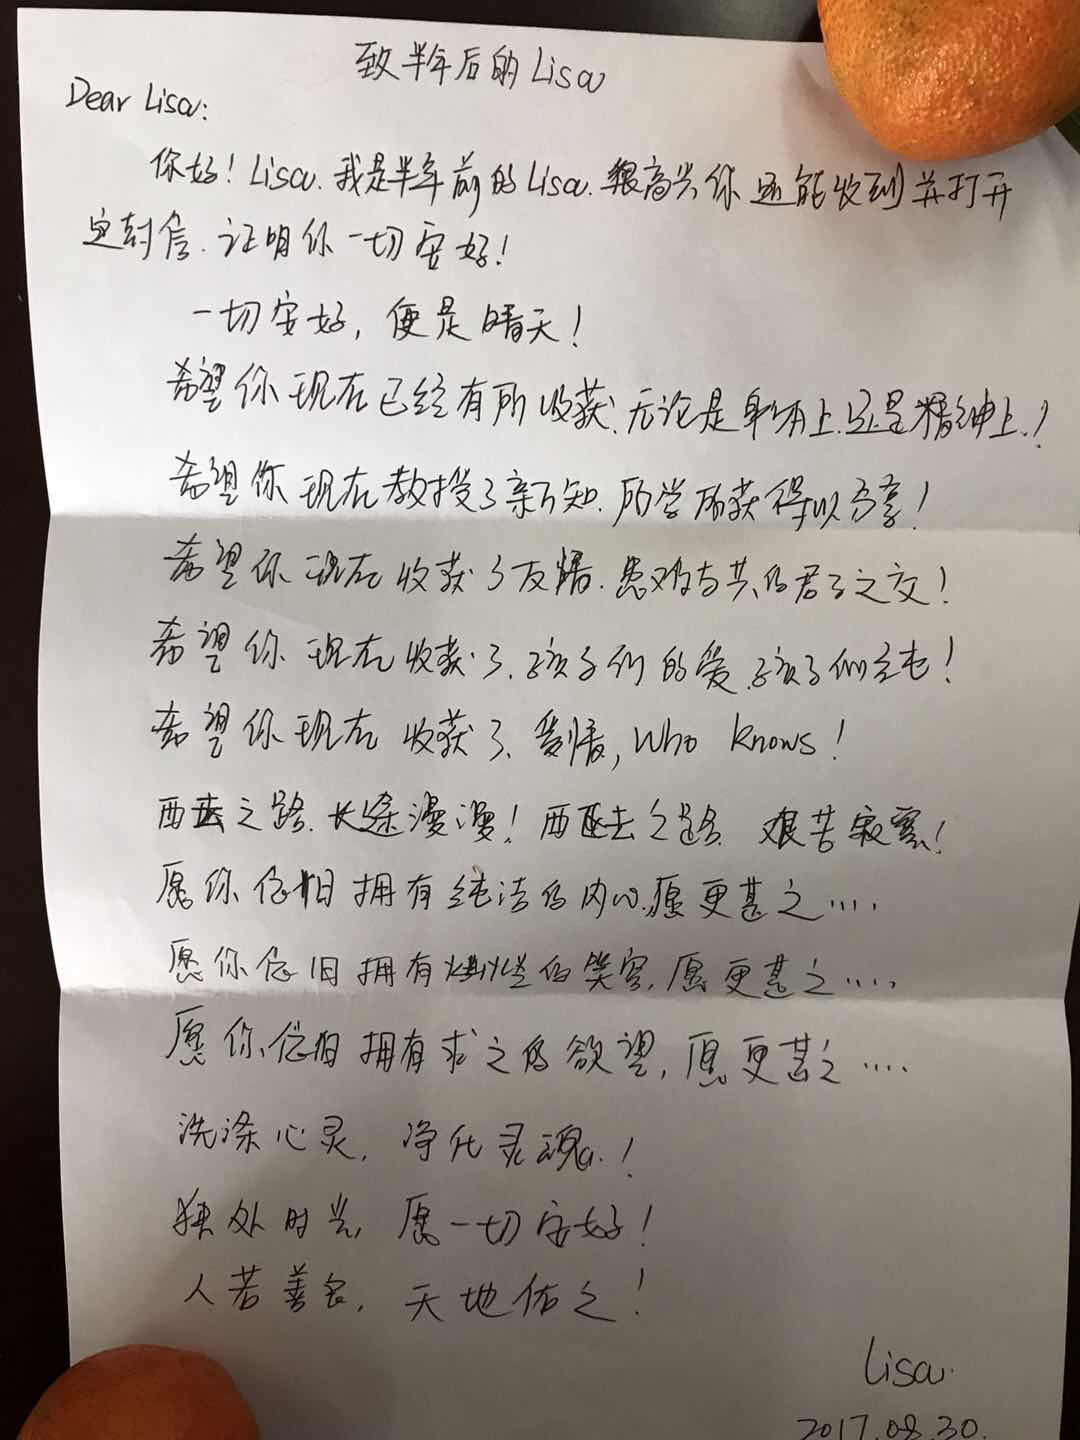 致半年后的Lisa
Dear Lisa:
你好！Lisa.我是半年前的Lisa.很高兴你还能收到并打开
这封信.证明你一切安好！
一切安好，便是晴天！
希望你现在已经有所收获.无论是身体上.还是精神上.！
希望你现在教授了新知.所学所获得以分享！
希望你现在收获了友情.患难与共的君子之交！
希望你现在收获了.孩子们的爱.孩子们纯！
希望你现在收获了、爱情, Who knows!
西去之路.长途漫漫！西去之路.艰苦寂寞！
愿你依旧拥有纯洁的内心.愿更甚之....
愿你依旧拥有灿烂的笑容,愿更甚之....
愿你依旧拥有求之的欲望,愿更甚之....
洗涤心灵，净化灵魂.！
独处时光，愿一切安好！
人若善良，天地佑之！
Lisa.
2017.08.30.